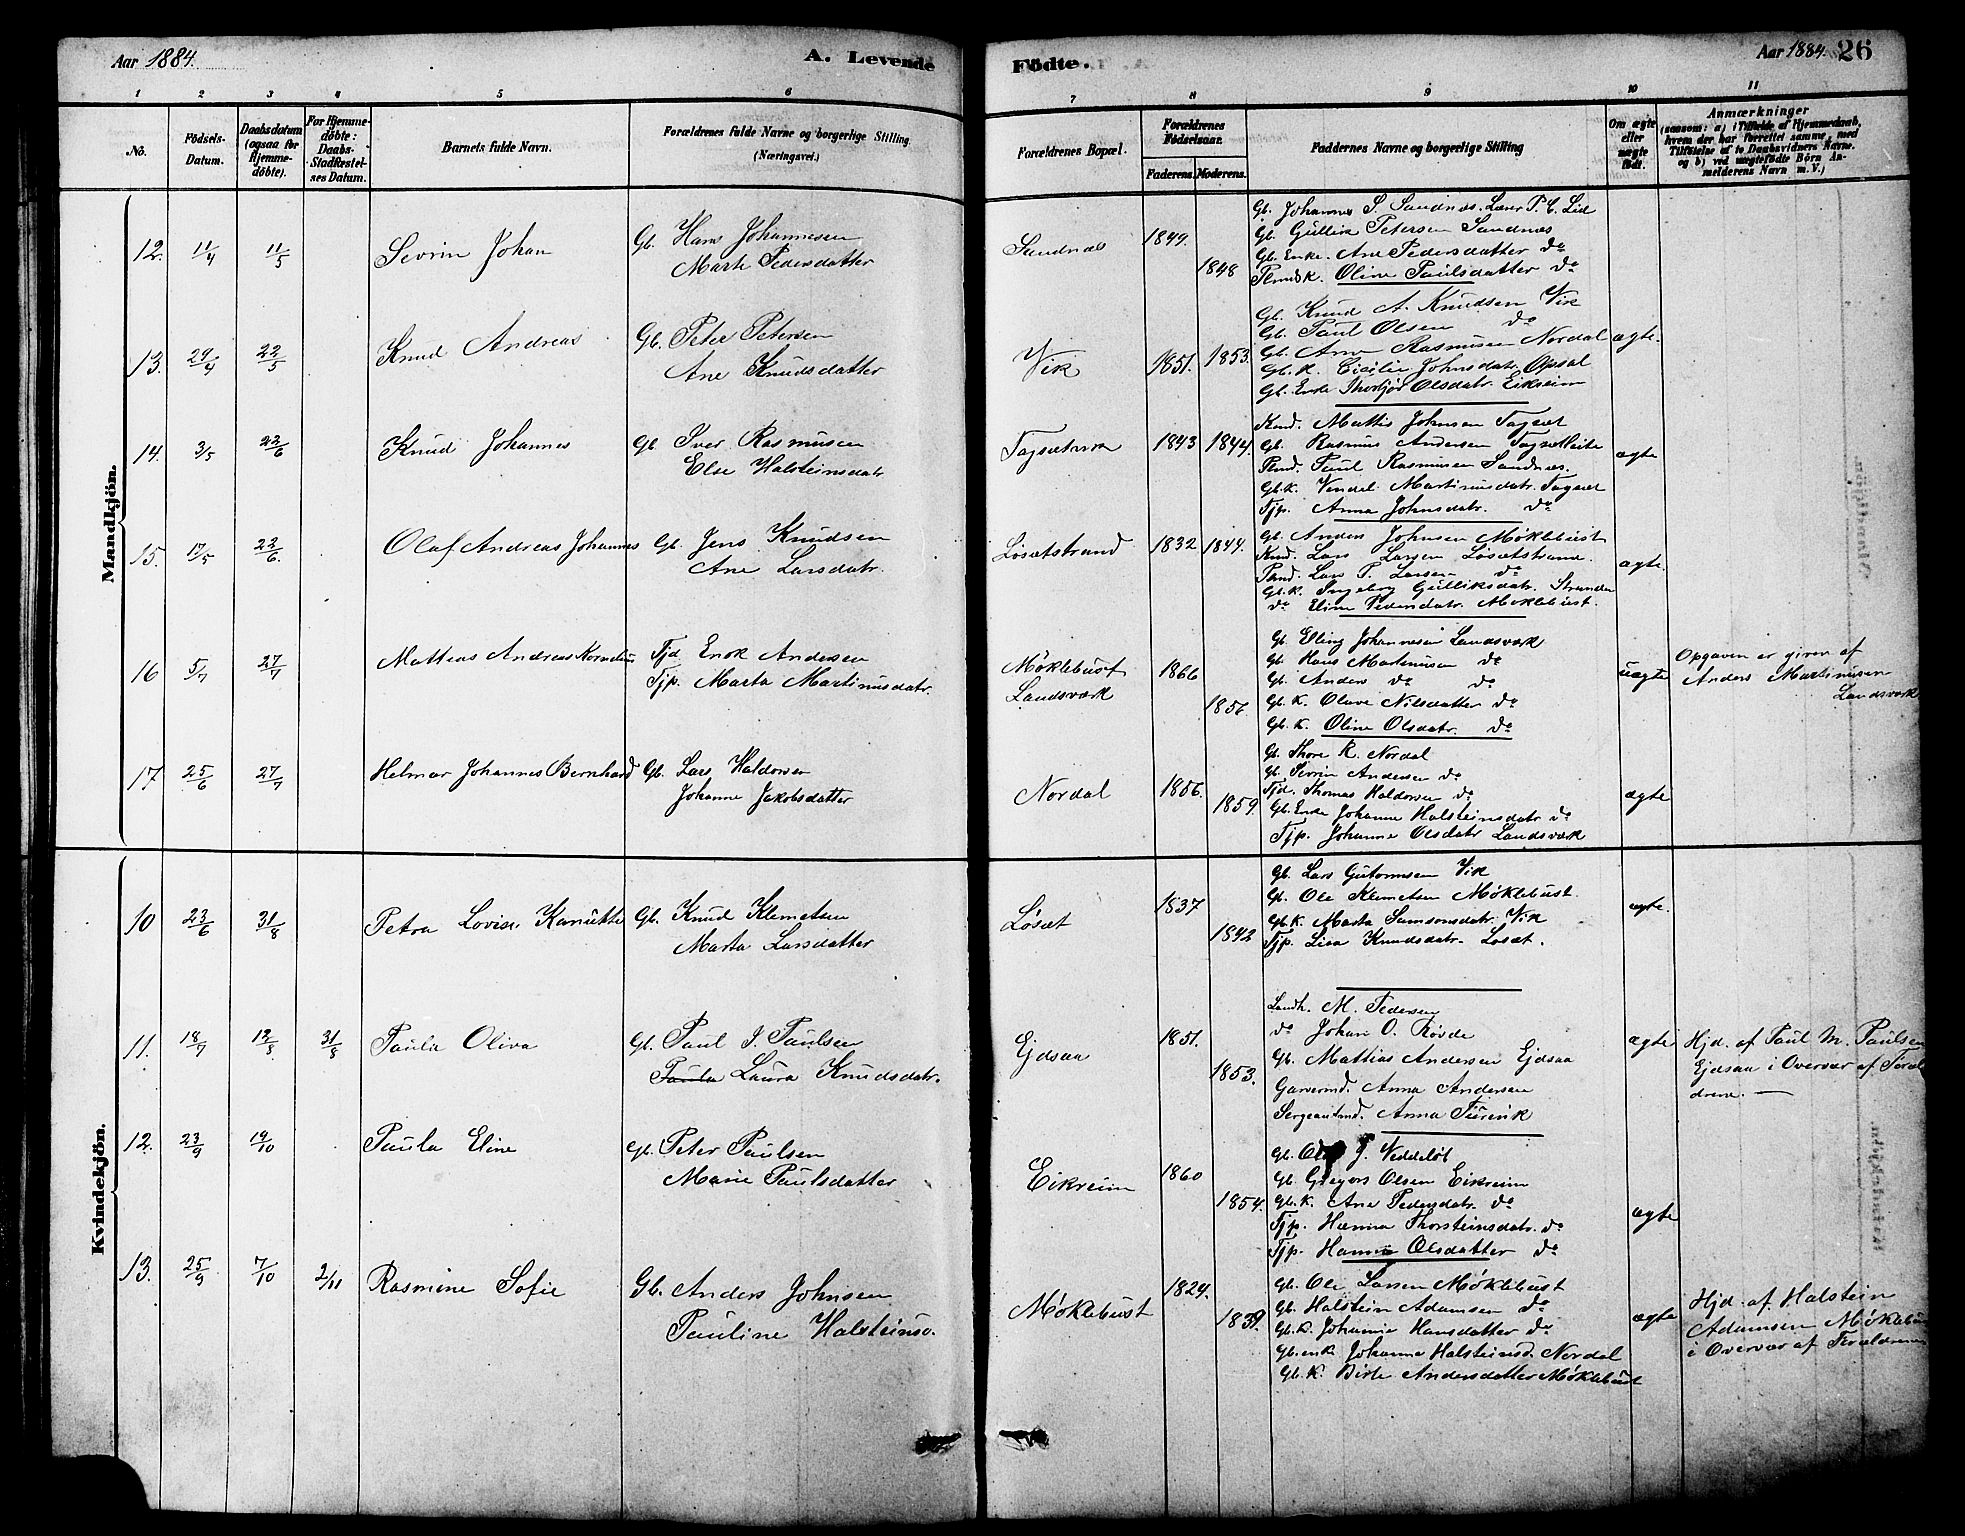 Aar 1884.
A. Levende
Fødte.
Aar 1884. 26
1 2 3 4 5 6
7 8 9 10 11
No.
Fødsels-Datum.
Daabsdatum (ogsaa for Hjemmedøbte).
For Hjemmedøbte: Daabs-Stadfestelses Datum.
Barnets fulde Navn.
Forældrenes fulde Navne og borgerlige Stilling. (Næringsvei.)
Forældrenes Bopæl.
Forældrenes Fødselsaar.
Faderens. Moderens.
Faddernes Navne og borgerlige Stilling
Om ægte eller uægte født.
Anmærkninger
(saasom: a) i Tilfælde af Hjemmedaab, hvem der har forrettet samme, med Tilføielse af to Daabsvidners Navne. og b) ved uægtefødte Børn Anmelderens Navn m. V.)
Mandkjön.
12. 11/4 11/5 Sevrin Johan
Gb. Hans Johannesen
Marte Pedersdatter
Sandnæs 1849. 1848
Gb. Johannes S. Sandnæs. Lærer P. C. Lid
Gb. Gullik Petersen Sandnæs
Gb. Enke. Ane Pedersdatter do
Oline Paulsdatter do
13. 29/4 22/5 Knud Andreas
Gb. Peter Petersen
Ane Knudsdatter
Vik 1851. 1853.
Gb. Knud A. Knudsen Vik
Gb. Paul Olsen do
Gb. Arne Rasmusen Nordal
Gb. K. Cicilie Johnsdatr. Opsal
Gb. Enke Olsdatr. Eikreim
ægte.
14. 3/5 22/6 Knud Johannes
Gb Iver Rasmusen
Else Halsteinsdatr
1843 1844.
Mattis Johnsen Tagset
Gb. Rasmus Andersen
Paul Rasmusen Sandnæs.
Gb. K. Vendel Martinusdatr. Tagset
Tjp. Anna Johnsdatr. do
ægte
15. 17/5 22/6. Olaf Andreas Johannes
Gb. Jens Knudsen
Ane Larsdatr.
Løsætstrand 1832 1844.
Gb. Anders Johnsen Møklebust
Lars Larsen Løsætstrand.
Lars P. Larsen do
Gb. K. Ingeborg Gulliksdatr.
do Eline Pedersdatr. Møklebust.
ægte.
16 5/7 27/7 Mattias Andreas Kornelius
Tjd Enok Andersen
Tjp. Marta Martinusdatr.
Møklebust
Landsværk
1866 1856
Gb. Elling Johannesen Landsværk
Gb. Hans Martinusen do
Gb. Anders do do
Gb. K. Olave Nilsdatter do
Gb. K. Oline Olsdatr. do
uægte
Opgaven er given af
Anders Martinusen
Landsværk
17 25/6 27/7 Helmar Johannes Bernhard
Gb. Lars Haldorsen
Johanne Jakobsdatter
Nordal 1856. 1859.
Gb. Thore R. Nordal
Gb. Sevrin Andersen do
Tjd. Thomas Haldorsen do
Gb. Enke Johanne Halsteinsdatr do
Tjp. Johanne Olsdatr Landsværk
ægte
Kvindekjön.
10 23/6 31/8 Petra Lovise Kanutte
Gb. Knud Klemetsen
Marta Larsdatter
Løsæt 1837 1842
Gb. Lars Guttormsen Vik
Gb. Ole Klemetsen Møklebust.
Gb. K. Marta Samsonsdatr. Vik
Tjp. Lisa Knudsdatr. Løsæt.
ægte.
11. 18/7 12/8 31/8 Paula Oliva
Gb. Paul J. Paulsen
Paula Laura Knudsdatr.
Ejdsaa 1851. 1853.
Landh. M. Pedersen
do Johan O. Røvde
Gb. Mattias Andersen Ejdsaa
Garvermd. Anna Andersen
Anna
ægte
Hjd. af Paul M. Paulsen
Ejdsaa i Overvær af Foræl
drene. —
12. 23/9 19/10 Paula Eline
Gb. Peter Paulsen
Marie Paulsdatter
Eikreim 1860 1854.
Gb. J. Veddeløt
Gb. Gregors Olsen Eikreim
Gb. K. Ane Pedersdatr. do
Tjp. Hanna Thorsteinsdatr. do
Tjp. Hanna Olsdatter do
ægte
13. 25/9 7/10 2/11 Rasmine Sofie
Gb. Anders Johnsen
Pauline Halsteinsd.
Møklebust 1824. 1839.
Gb. Ole Larsen Møklebust
Gb. Halstein Adamsen do
Gb. K. Johanne Hansdatter do
Gb. enk. Johanne Halsteinsd. Nordal
Gb. K. Birte Andersdatter Møklebust
ægte
Hjd. af Halstein
Adamsen Møklebu
i Overvær af Forældrene